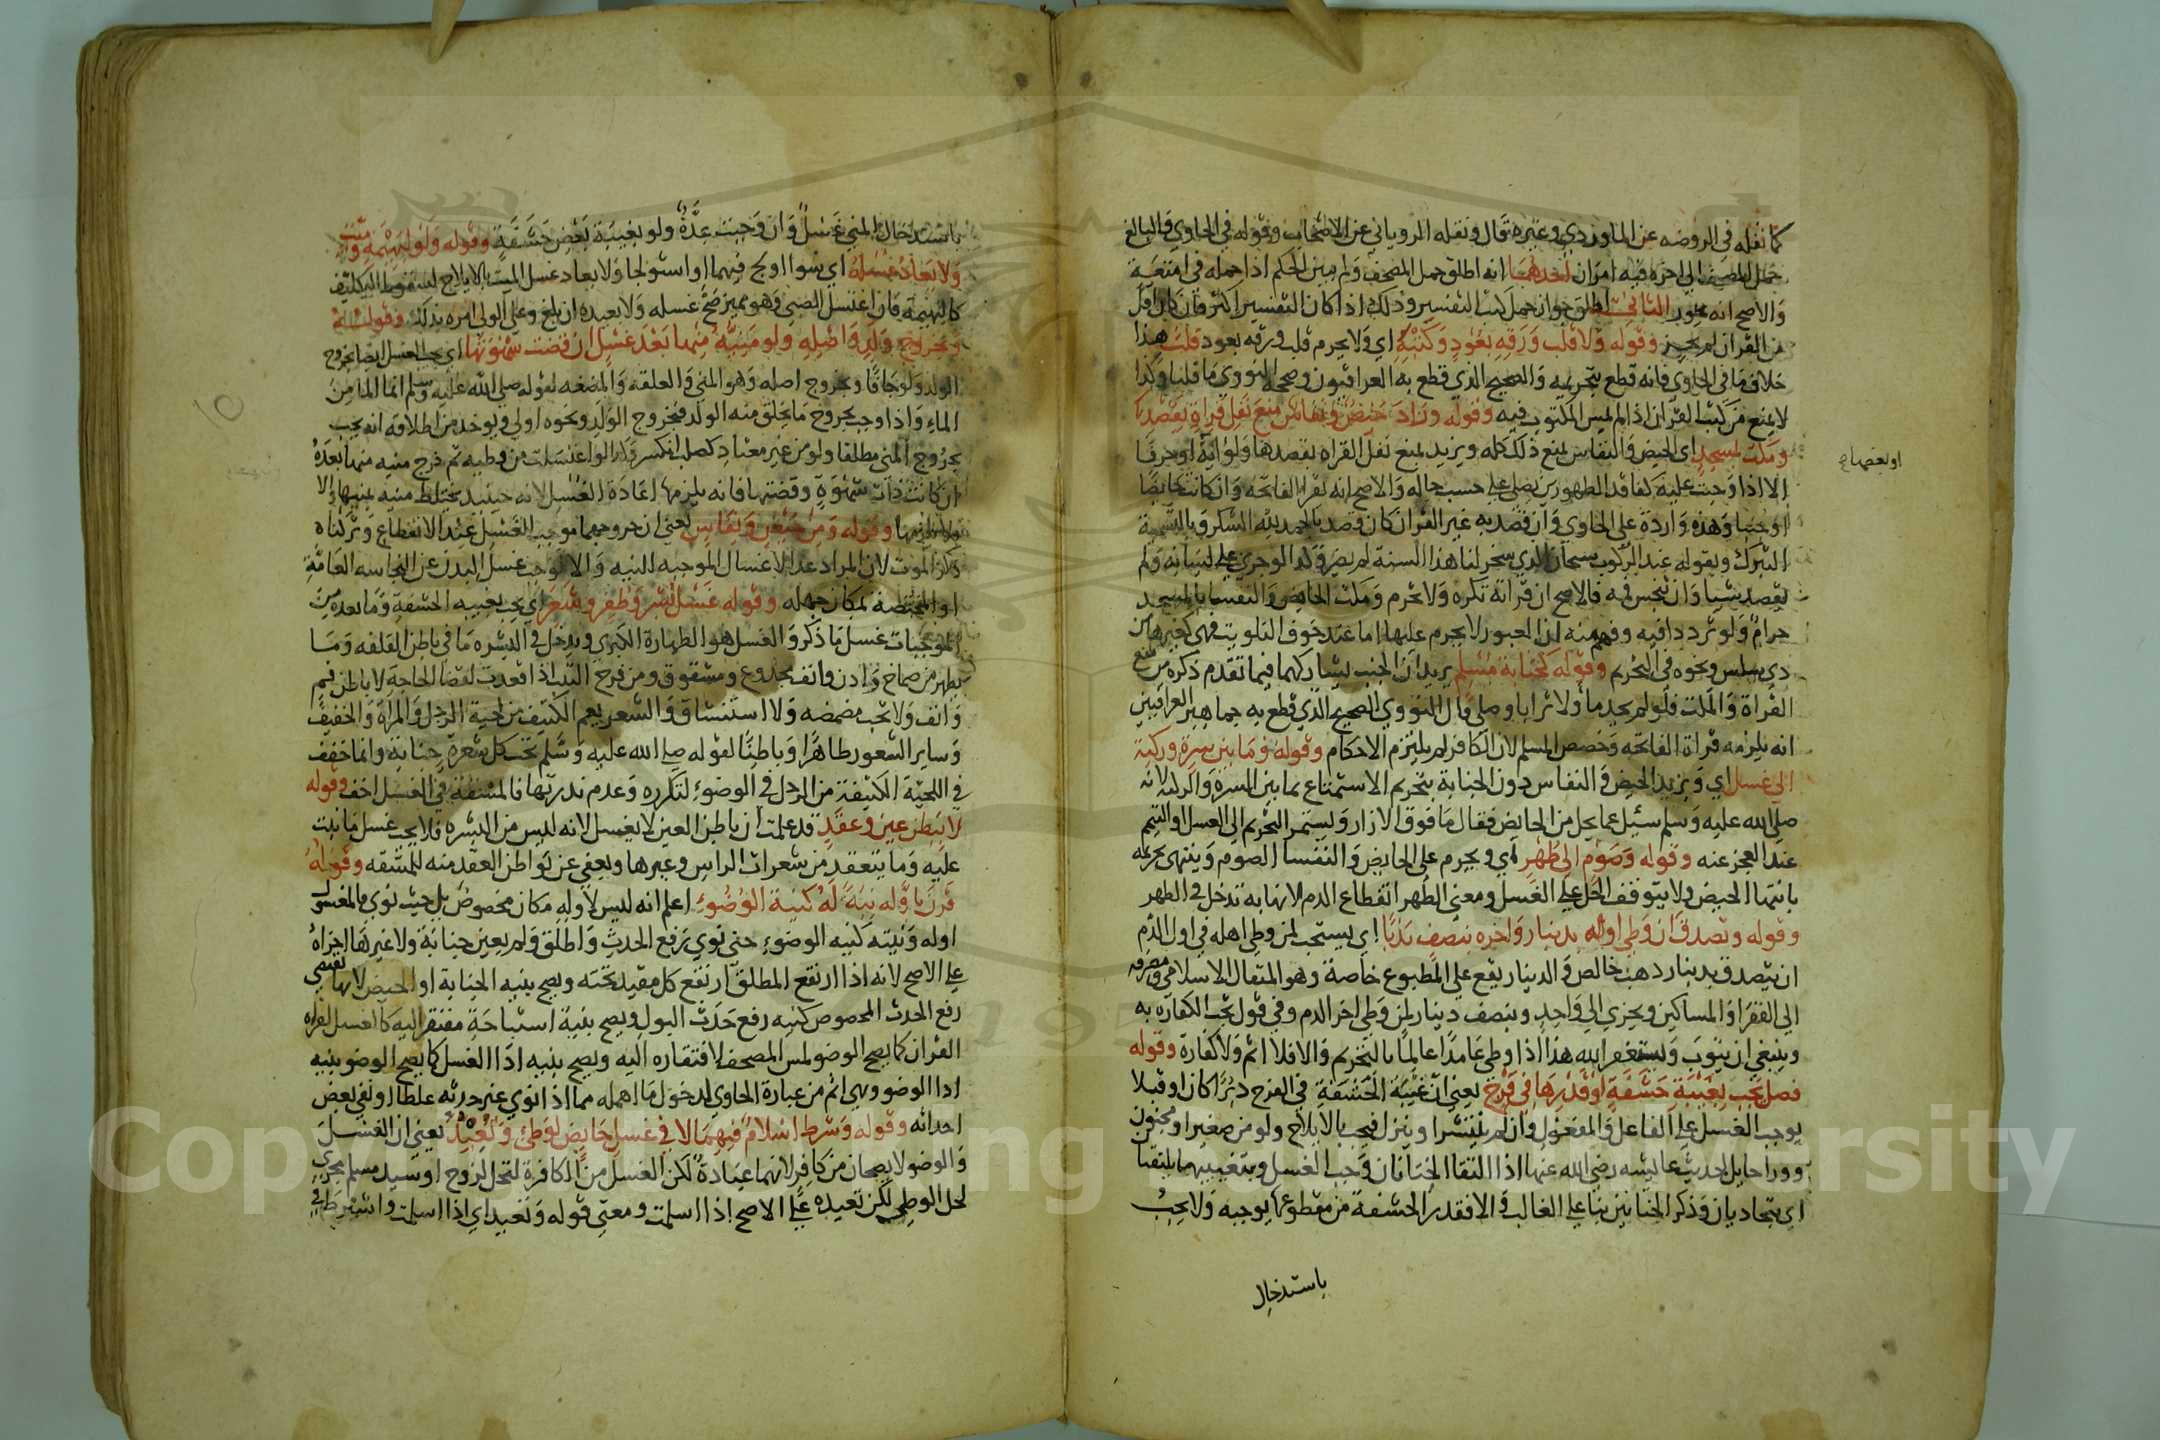 كما نقله في الروضه عن الماوردي وغيره قال ونقله الروياني عن الاصحاب وقوله في الحاوي والبالغ
حمل المصحف الي اخره فيه امران احدهما انه اطلق حمل المصحف ولم يبين الحكم اذا حمله في امتعة
والاصح انه يجوز الثاني اطلق جواز حمل كتب التفسير وذلك اذا كان التفسير اكثر فان كان اقل
من القران لم يجز وقوله ولا قلب ورقه بعود وكتبه اي ولا يحرم قلب ورقه بعود قلت هذا
خلاف ما في الحاوي فانه قطع بتحريمه والصحيح الذي قطع به العراقيون وصححه النووي ما قلنا وكذا
لا يمنع من كتب القران اذا لم يمس المكتوب فيه وقوله وزاد حيض ونفاس منع نفل قراة بقصدها
ومكث لمسجد اي الحيض والنفاس لمنع ذلك كله ويزيد لمنع نفل القراه بقصدها ولو اية او حرفا
اوبعضهاع
الا اذا وجبت عليه كفاقد الطهورين يصلي علي حسب حاله والاصح انه يقرا الفاتحه وان كانت حايضا
او جنبا وهذه واردة علي الحاوي وان قصد به غير القران كان قصد بالحمد لله الشكر وبالتسمية
التبرك وبقوله عند الركوب سبحان الذي سخر لنا هذا السنة لم يضر وكذا لو جري علي لسانه ولم
يقصد شيا وان تنجس فمه فالاصح ان قراته تكره ولا تحرم ومكث الحايض والنفسا بالمسجد
حرام ولو تردد فيه وفهم منه ان العبور لا يحرم عليها اما عند خوف التلويث فهي كغيرها من
ذي سلس ونحوه في التحريم وقوله كجنابة مسلم يريد ان الجنب يشاركهما فيما تقدم ذكره من منع
القراة والمكث فلو لم يجد ما ولا ترابا وصلي قال النووي الصحيح الذي قطع به جماهير العراقيين
انه يلزمه قراة الفاتحه وخصص المسلم لان الكافر لم يلتزم الاحكام وقوله وما بين سرة وركبة
الي غسل اي ويزيد الحيض والنفاس دون الجنابة بتحريم الاستمتاع بما بين السرة والركبة لانه
صلي الله عليه وسلم سئيل عما يحل من الحايض فقال ما فوق الازار ويستمر التحريم الي الغسل او التيمم
عند العجز عنه وقوله وصوم الي طهر اي ويحرم علي الحايض والنفسا الصوم وينتهي تحريمه
بانتها الحيض ولا يتوقف الحل علي الغسل ومعني الطهر انقطاع الدم لانها به تدخل في الطهر
وقوله وتصدق ان وطي اوله بدينار واخره بنصف ندبا اي يستحب لمن وطي اهله في اول الدم
ان يتصدق بدينار ذهب خالص والدينار يقع علي المطبوع خاصة وهو المثقال الاسلامي ومصرفه
الي الفقرا والمساكين ويجزي الي واحد وبنصف دينار لمن وطي اخر الدم وفي قول تجب الكفاره به
وينبغي ان يتوب ويستغفر الله هذا اذا وطي عامدا عالما بالتحريم والا فلا اثم ولا كفارة وقوله
فصل يجب بغيبة حشفة او قدرها في فرج يعني ان غيبة الحشفة في الفرج دبرا كان او قبلا
يوجب الغسل علي الفاعل والمفعول وان لم ينتشر او ينزل فيجب بالايلاج ولو من صغير او مجنون
وورا حايل لحديث عايشه رضي الله عنها اذا التقا الختانان وجب الغسل وبتغييبهما يلتقيا
اي يتحاديان وذكر الختانين بنا علي الغالب والا فقدر الحشفة من مقطوعها يوجبه ولا يجب
باستدخال
باستدخال المني غسل وان وجبت عدة ولو بغيبة بعض حشفة وقوله ولو لبهيمة وميت
ولا يعاد غسله اي سوا اولج فيهما او استولجا ولا يعاد غسل الميت بالايلاج لسقوط التكليف
كالبهيمة فان اغتسل الصبي وهو مميز صح غسله ولا يعيده ان بلغ وعلي الولي امره بذلك وقوله
وبخروج ولد واصله ولو منيه منها بعد غسل ان قضت شهوتها اي يجب الغسل ايضا بخروج
الولد ولو جافا وبخروج اصله وهو المني والعلقه والمضغه لقوله صلي الله عليه وسلم انما الما من
الماء واذا وجب بخروج ما يخلق منه الولد فبخروج الولد ونحوه اولي ويوخذ من اطلاقه انه يجب
بخروج المني مطلقا ولو من غير معتاد كصلب انكسر وكذا لو اغتسلت من وطيه ثم خرج منيه منها بعده
ان كانت ذات شهوة وقضتها فانه يلزمها اعادة الغسل لانه حينيذ يختلط منيه بمنيها والا
فلا يلزمها وقوله ومن حيض ونفاس يعني ان خروجهما موجب الغسل عند الانقطاع وتركناه
ذكر الموت لان المراد عد الاغسال الموجبه للنيه والا لوجب غسل البدن عن النجاسه العامة
او المختصة بمكان جهله وقوله غسل بشر وظفر وشعر اي يجب بغيبة الحشفة وما بعده من
الموجبات غسل ما ذكر والغسل هو الطهارة الكبري ويدخل في البشره ما في باطن القلفه وما
يظهر من صماخ واذن وانف مجدوع ومشقوق ومن فرج الثيب اذا قعدت لقضا الحاجة لا باطن فم
وانف ولا تجب مضمضه ولا استنشاق والشعر يعم الكثيف من لحية الرجل والمراة والخفيف
وساير الشعور ظاهرا وباطنا لقوله صلي الله عليه وسلم تحت كل شعرة جنابة وانما خفف
في اللحية الكثيفة من الرجل في الوضوء لتكرره وعدم ندرتها فالمشقة في الغسل اخف وقوله
لا ببطن عين وعقد قد علمت ان باطن العين لا يغسل لانه ليس من البشره فلا يجب غسل ما نبت
عليه وما تنعقد من شعرات الراس وغيرها ويعفي عن بواطن العقد منه للمشقه وقوله
قرن باوله نية له كنية الوضوء اعلم انه ليس لاوله مكان مخصوص بل حيث نوي فالمغسول
اوله ونيته كنيه الوضوء حتي لو نوي رفع الحدث واطلق ولم يعين جنابة ولا غيرها اجزاه
علي الاصح لانه اذا ارتفع المطلق ارتفع كل مقيد تحته ويصح بنيه الجنابة او الحيض لانها تقتضي
رفع الحدث المخصوص كنيه رفع حدث البول ويصح بنية استباحة مفتقر اليه كالغسل لقراه
القران كما يصح الوضو لمس المصحف لافتقاره اليه ويصح بنيه ادا الغسل كما يصح الوضو بنيه
ادا الوضو وهي اتم من عبارة الحاوي لدخول ما اهمله مما اذا نوي غير حدثه غلطا او نفي بعض
احداثه وقوله وشرط اسلام فيهما لا في غسل حايض لوطئ وتعيد يعني ان الغسل
والوضو لا يصحان من كافر لانهما عبادة لكن الغسل من الكافرة لتحل لزوج او سيد مسلم يجزي
لحل الوطي لكن تعيده علي الاصح اذا اسلمت ومعني قوله وتعيد اي اذا اسلمت واشترطا في